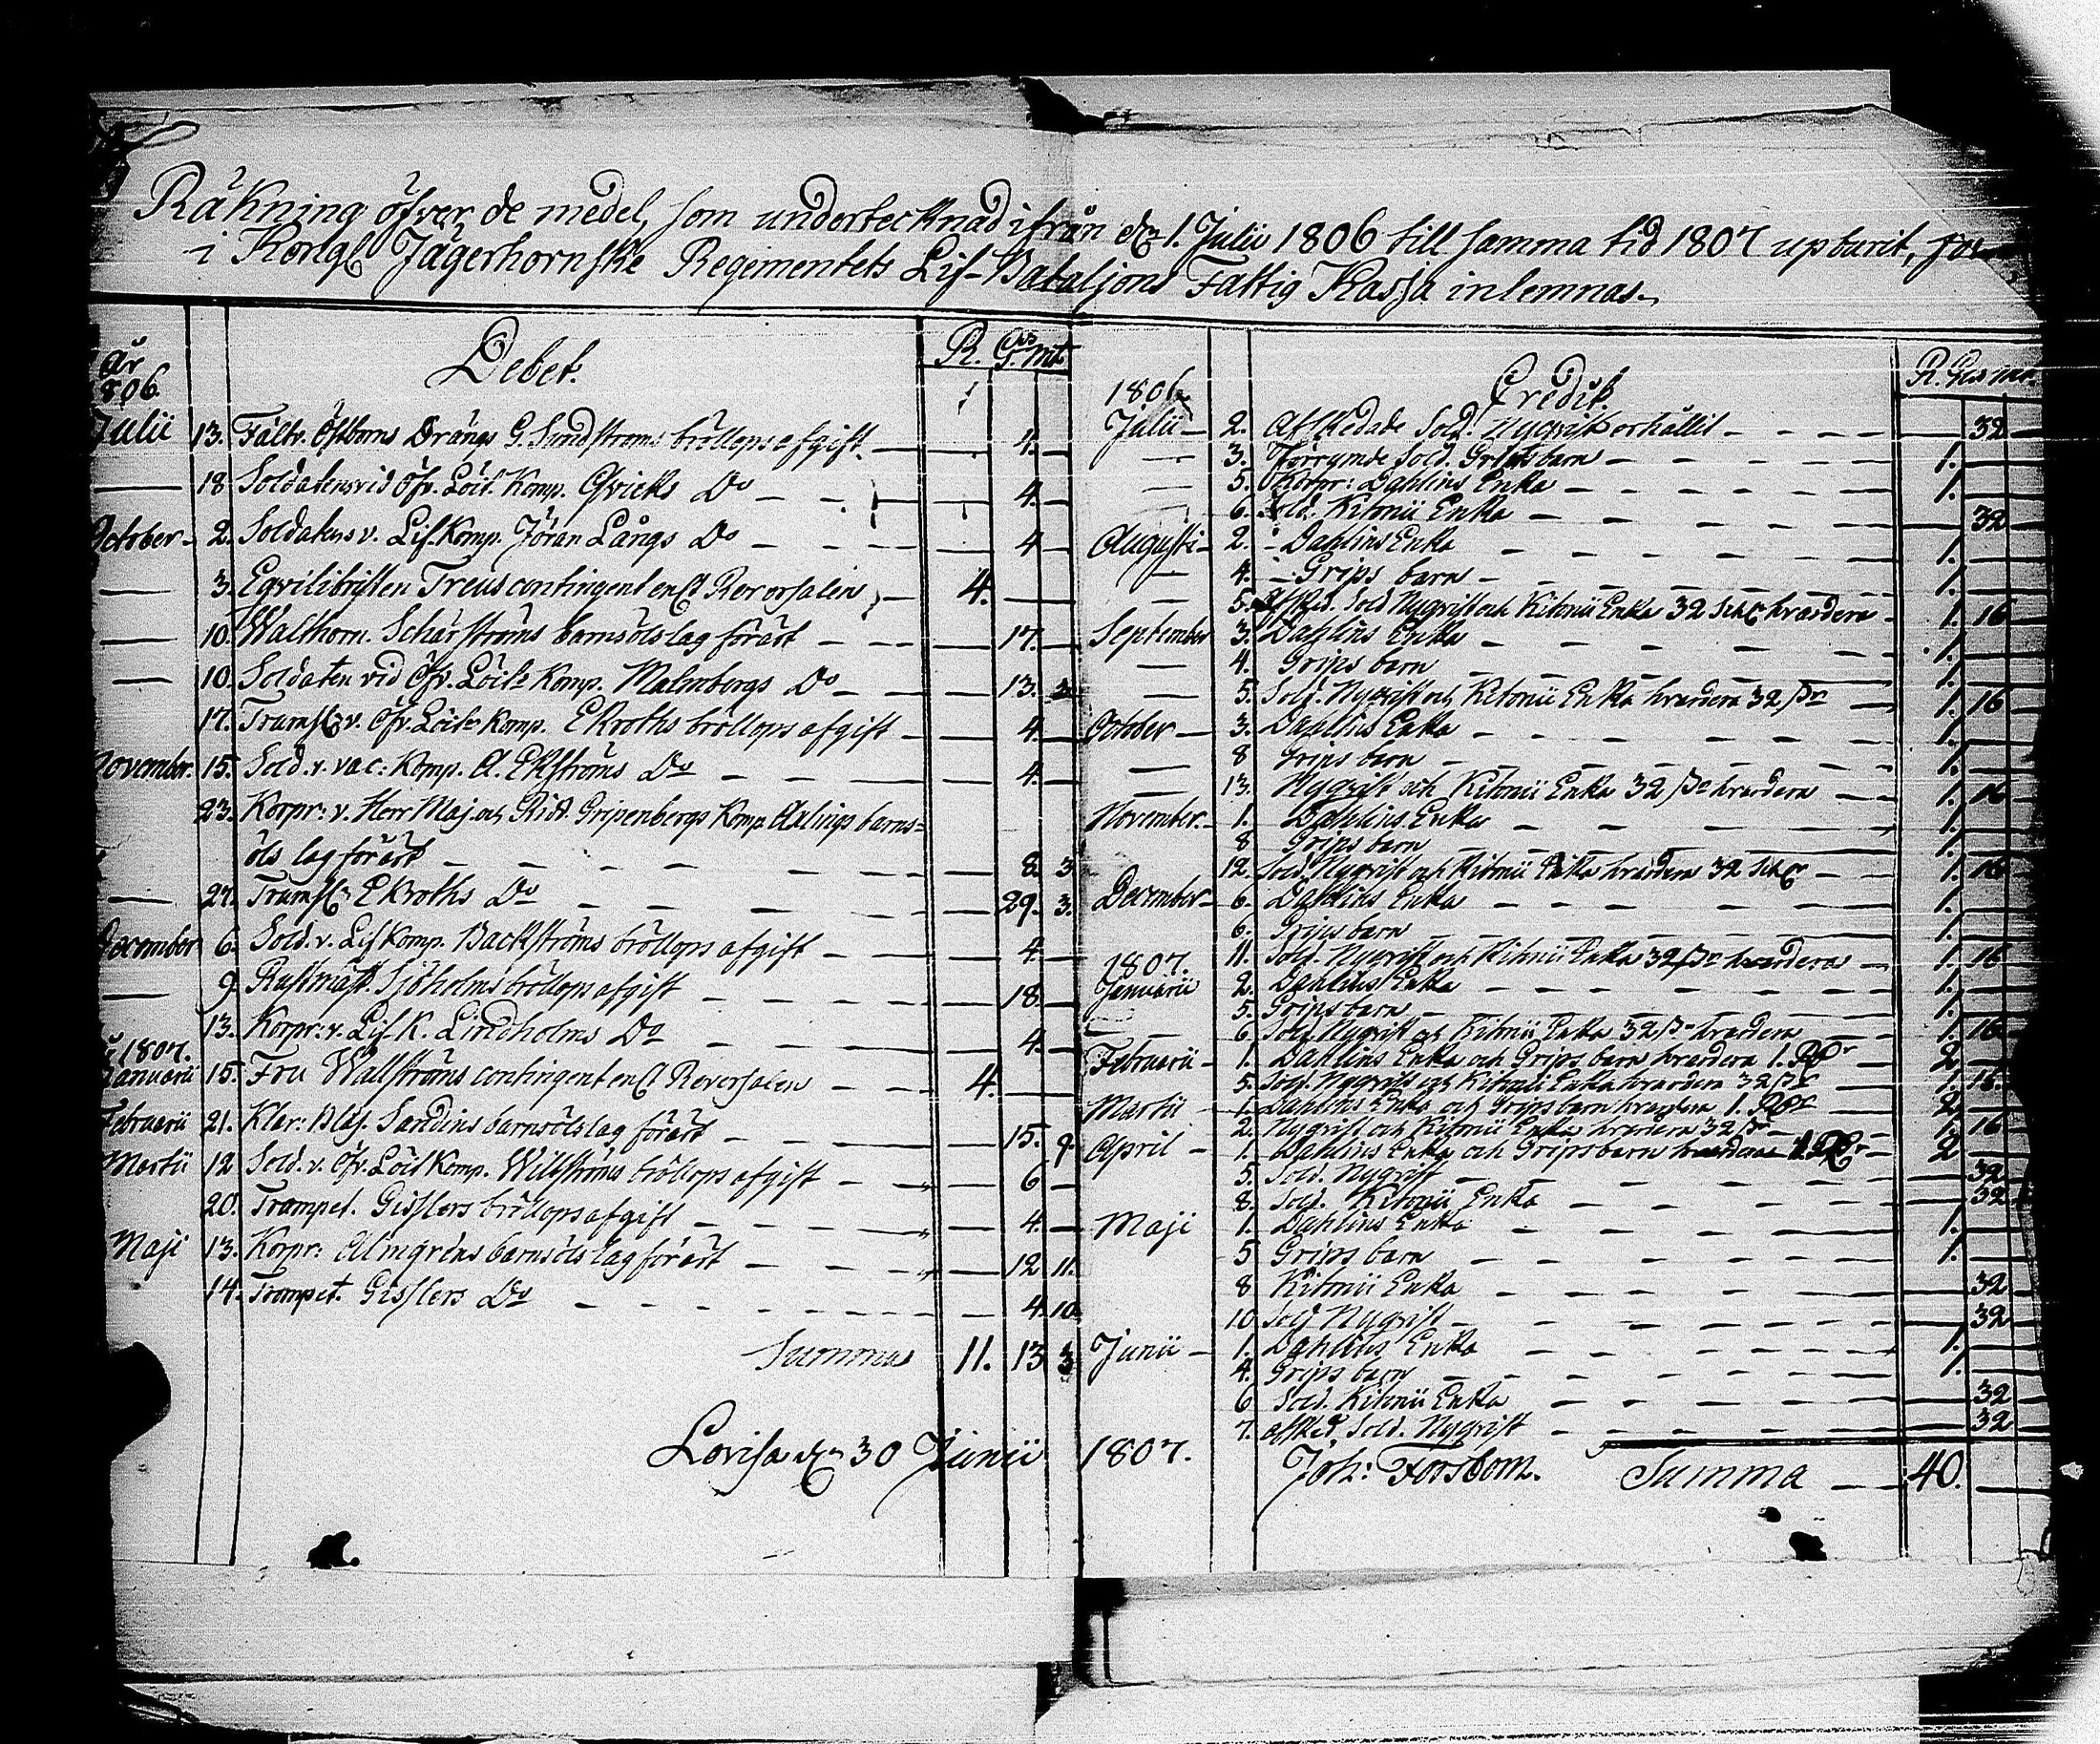 Räkning öfver de medel, som undertecknad ifrån den 1. Julii 1806 till samma tid 1807 upburit, som
i Kongl Jägerhornske Regementets Lif-Bataljons Fattig Kassa inlemnas
År
1806
Debet.
R. Gs. mt
Julii 13. Fältv. Östborns Drängs G. Sundströms bröllops afgift — 4. —
— 18 Soldatens vid Öfv. Löit. Komp. Qvicks Do — 4. —
October 2. Soldatens v. Lif Komp. Jöran Långs Do — 4 —
— 3. Eqvilibristen Treus contingent enl Reversalen 4. —
— 10. Walthorn. Schärströms barnsöls lag förärt — 17. —
— 10. Soldaten vid Öfv. Löits Komp. Malmbergs Do — 13.
17. Trumsl v. Öfv. Löits Komp. Ekroths bröllops afgift — 4. —
November. 15. Sold. v. vac: Komp. A. Ekströms Do — 4. —
23. Korpr: v. Herr Maj och Ridd. Gripenbergs Komp. barns=
öls lag förärt — 8. 3
— 27. Trumsl Ekroths Do — 29. 3.
December 6. Sold. v. Lif Komp. Backströms bröllops afgift — 4. —
— 9. Rustmäst. Sjöholms bröllops afgift — 18. —
13. Korpr: v. Lif K. Lindholms Do — 4. —
1807.
Januarii 15. Fru Wallströms contingent enl Reversalen — 4. —
Februarii 21. Klar: Blås. Sandins barnsöls lag förärt — 15. 9.
Martii 12 Sold. v. Öfv. Löit Komp. Willströms bröllops afgift — 6 —
20. Trompet. Gisslers bröllops afgift — 4. —
Maji 13. Korpr: Almgréns barnsöls lag förärt — 12 11.
14. Trompet. Gisslers Do — 4. 10.
Summa 11. 13 3
Lovisa den 30 Junii
1806
Credit.
R. Gs mt.
Julii 2. Afskedade Sold. Nyqvist erhållit — 32
— 3. Förrymde Sold. Grips barn — 1.
— 5. Dahlins Enka — 1.
6. Sold. Kitonii Enka — 32
Augusti 2. Dahlins Enka — 1.
— 4. Grips barn — 1.
— 5. Afsked. Sold Nyqvist och Kitonii Enka 32 Sch hvardera 1. 16
September 3. Dahlins Enka — 1.
— 4. Grips barn — 1.
— 5. Sold. Nyqvist och Kitonii Enka hvardera 32 — 1. 16
October 3. Dahlins Enka — 1.
— 8 Grips barn — 1.
— 13. Nyqvist och Kitonii Enka 32 hvardera — 1. 16
November. 1. Dahlins Enka — 1.
8 Grips barn — 1.
12. Sold. Nyqvist och Kitonii Enka hvardera 32 Sch — 1. 16
December 6. Dahlins Enka — 1.
6. Grips barn — 1.
11. Sold. Nyqvist och Kitonii Enka 32 hvardera — 1. 16
1807.
Januarii 2. Dahlins Enka — 1.
5. Grips barn — 1.
— 6. Sold. Nyqvist och Kitonii Enka 32 hvardera — 1. 16
Februarii 1. Dahlins Enka och Grips barn hvardera 1. Rdr 2.
5. Sold. Nyqvist och Kitonii Enka hvardera 32 1. 16.
Martii 1. Dahlins Enka och Grips barn hvardera 1. Rdr 2.
2. Nyqvist och Kitonii Enka hvardera 32 — 1. 16
April 1. Dahlins Enka och Grips barn hvardera 1 Rdr 2
5. Sold. Nyqvist — 32
8. Sold. Kitonii Enka — 32
Maji 1. Dahlins Enka — 1.
5 Grips barn — 1.
8 Kitonii Enka — 32
10 Sold Nyqvist — 32
Junii 1. Dahlins Enka — 1.
4. Grips barn — 1.
6 Sold. Kitonii Enka — 32
7. afsked. Sold. Nyqvist — 32
1807. Joh: Forsbom. Summa — 40.